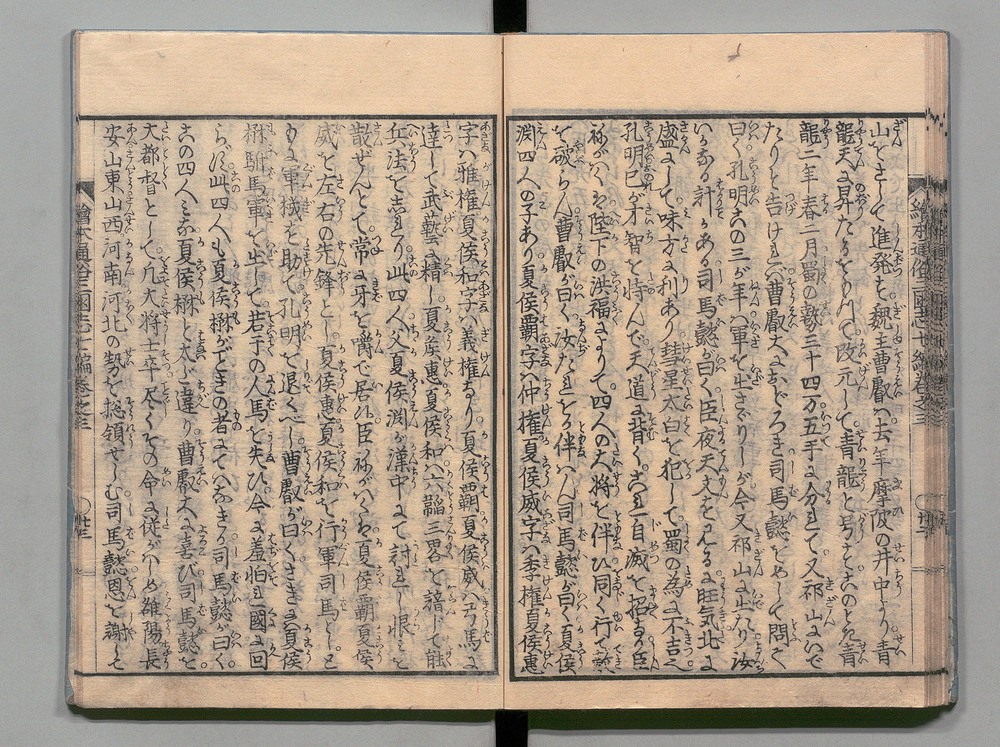 山をさして進発す魏王曹叡ハ去年摩陂の井中より青
龍天に昇たるを以て改元して青龍と号すこのとき青
龍二年春二月蜀の勢三十四万五手に分れて又祁山にいで
たりと告けれバ曹叡大におどろき司馬懿をめして問て
曰く孔明この三が年ハ軍を出さゞりしが今又祁山に出たり汝
いかなる計かある司馬懿が曰く臣夜天文をみるに旺気北に
盛にして味方に利あり彗星太白を犯して蜀の為に不吉也
孔明己が才智を恃んで天道に背くこれ自滅を招くなり臣
ねがハくハ陛下の洪福によりて四人の大将を伴ひ同く行て蜀
を破らん曹叡が曰く汝たれをか伴ハん司馬懿が曰く夏侯
淵四人の子あり夏侯覇字ハ仲権夏侯威字ハ季権夏侯恵
字ハ雅権夏侯和字ハ義権なり夏侯覇夏侯威ハ弓馬に
達して武藝に精し夏侯恵夏侯和ハ六韜三畧を諳じて能
兵法をしれり此四人父夏侯淵が漢中にて討れし恨ミを
散ぜんとて常に牙を嚼で居れバ臣ねがハくハ夏侯覇夏侯
威を左右の先鋒とし夏侯恵夏侯和を行軍司馬とし
ともに軍機を助て孔明を退くべし曹叡が曰くさきに夏侯
楙駙馬軍を出して若干の人馬を先ひ今に羞怕れ國に回
らバ此四人も夏侯楙がごときの者にてハなきか司馬懿が曰く
この四人ミな夏侯楙と大に違り曹叡大に喜び司馬懿を
大都督として凡大将士卒尽くその命に従がハしめ雒陽長
安山東山西河南河北の勢を総領せしむ司馬懿恩を謝して
繪本通俗三國志七編巻之三
廿三